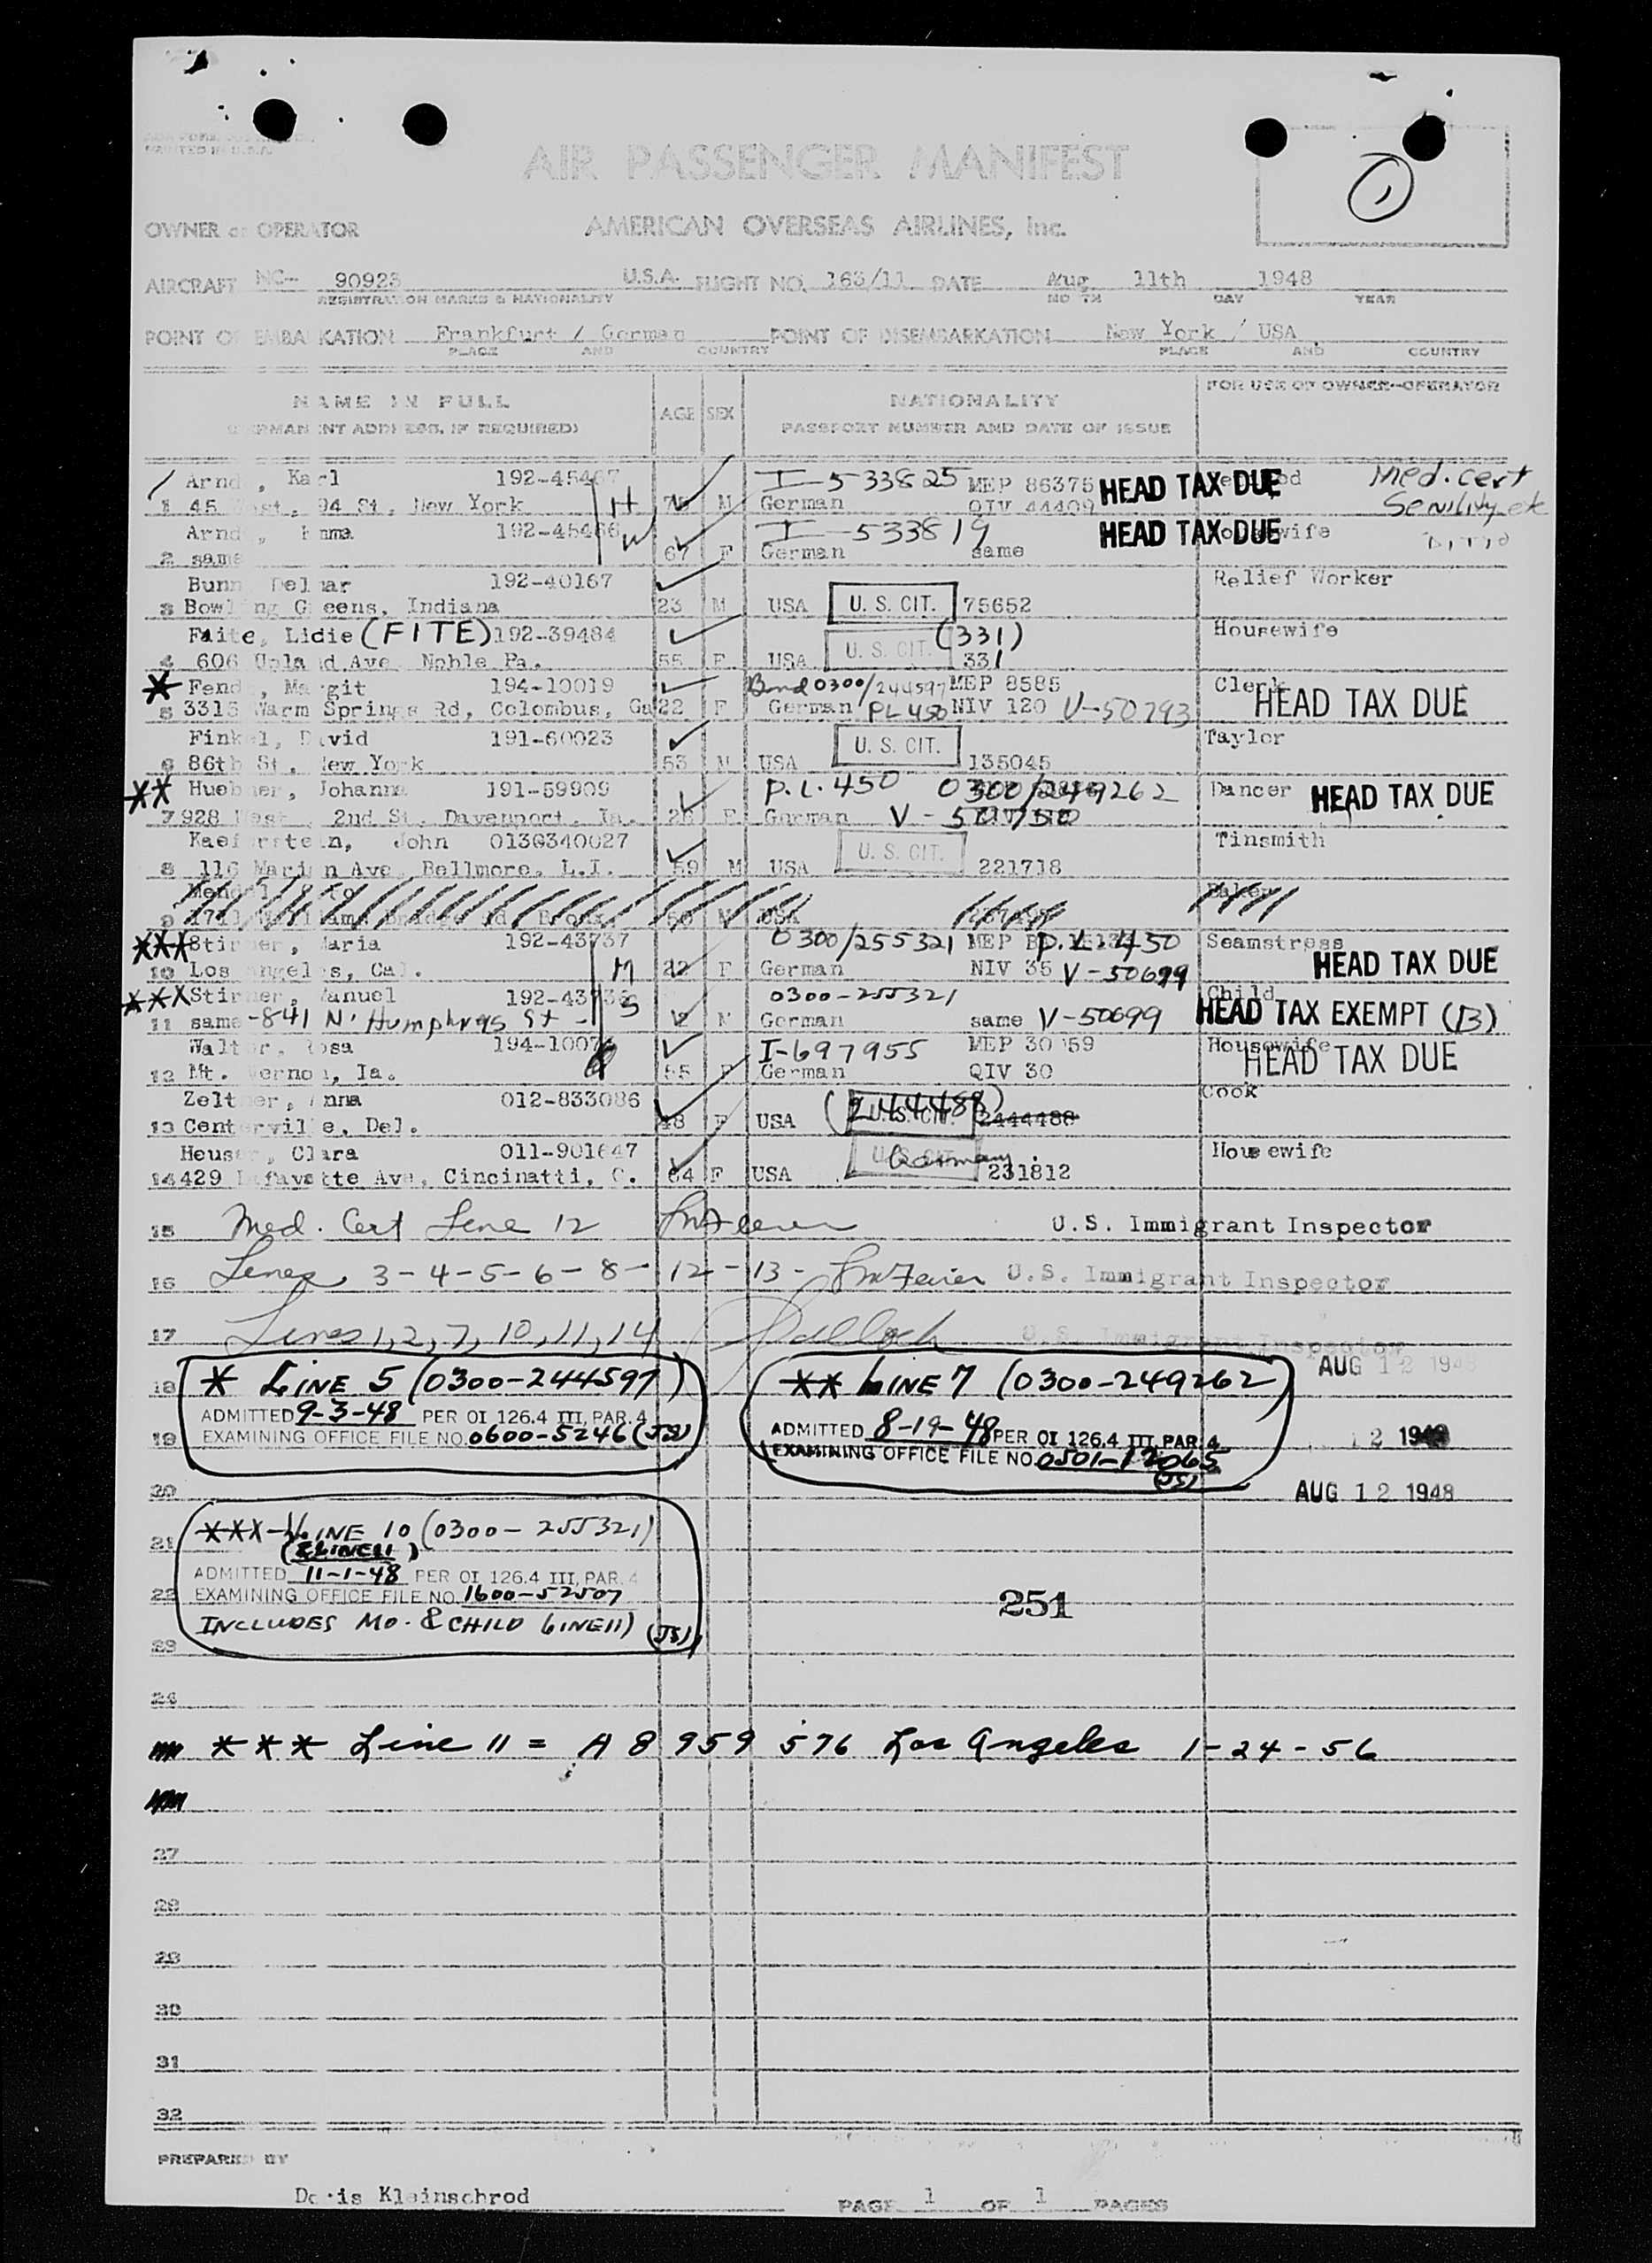 PRINTED IN U.S.A.
AIR PASSENGER MANIFEST
1
OWNER or OPERATOR AMERICAN OVERSEAS AIRLINES, Inc.
AIRCRAFT NC- 90923 U.S.A. FLIGHT NO. 163/11 DATE Aug 11th 1948
REGISTRATION MARKS & NATIONALITY MONTH DAY YEAR
POINT OF EMBARKATION Frankfurt / German POINT OF DISEMBARKATION New York / USA
PLACE AND COUNTRY PLACE AND COUNTRY
NAME IN FULL AGE SEX NATIONALITY FOR USE OF OWNER-OPERATOR
(PERMANENT ADDRESS, IF REQUIRED) PASSPORT NUMBER AND DATE OF ISSUE
Arnd , Karl 192-45467 I-533825 MEP 86375 HEAD TAX DUE Med. cert
1 45 st, 94 St, New York H 75 M German QIV 44409 Senility etc
Arnd , Emma 192-45466 W I-533819 HEAD TAX DUE Housewife
2 same 67 F German same
Bunn Delmar 192-40167 Relief Worker
3 Bowling Greens, Indiana 23 M USA U. S. CIT. 75652
Faite, Lidie (FITE) 192-39484 (331) Housewife
4 606 Upland Ave Noble Pa. 55 F USA U. S. CIT. 331
* Fend , Margit 194-10019 Bond 0300/244597 MEP 8585 Clerk HEAD TAX DUE
5 3313 Warm Springs Rd, Colombus, Ga 22 F German PL 450 NIV 120 V-50793
Finkel, David 191-60023 U. S. CIT. Taylor
6 86th St, New York 53 M USA 135045
** Huebner, Johanna 191-59909 P.L. 450 0300/249262 Dancer HEAD TAX DUE
7 928 West , 2nd St, Davenport, Ia. 26 F German V-
Kaeferstein, John 013G340027 U. S. CIT. Tinsmith
8 116 Marion Ave Bellmore, L.I. 59 M USA 221718
Baker
9 Bronx 50 M USA
*** Stirner, Maria 192-43737 0300/255321 MEP P.L. 450 Seamstress
10 Los Angeles, Cal. M 22 F German NIV 35 V-50699 HEAD TAX DUE
*** Stirner, Manuel 192-43738 0300-255321 Child
11 same -841 N. Humphreys St - S 2 M German same V-50699 HEAD TAX EXEMPT (B)
Walter, Rosa 194-1007 I-697955 MEP 30 59 Housewife HEAD TAX DUE
12 Mt. Vernon, Ia. 55 F German QIV 30
Zeltner, Anna 012-833086 (2444488) Cook
13 Centerville, Del. 48 F USA U. S. CIT. 2444488
Heuser, Clara 011-901647 U. S. CIT. Germany Housewife
14 429 Lafayette Ave, Cincinatti, O. 64 F USA 231812
15 Med. Cert Line 12 U.S. Immigrant Inspector
16 Lines 3-4-5-6-8-12-13- U.S. Immigrant Inspector
17 Lines 1, 2, 7, 10, 11, 14 U.S. Immigrant Inspector
AUG 12 1948
18 * LINE 5 (0300-244597) ** LINE 7 (0300-249262
ADMITTED 9-3-48 PER OI 126.4 III, PAR. 4 ADMITTED 8-19-48 PER OI 126.4 III PAR. 4
19 EXAMINING OFFICE FILE NO. 0600-5246 (JS) EXAMINING OFFICE FILE NO. 0501-12065 12 1948
(JS)
20 AUG 12 1948
21 *** LINE 10 (0300-255321)
(& LINE 11)
ADMITTED 11-1-48 PER OI 126.4 III, PAR. 4
22 EXAMINING OFFICE FILE NO. 1600-52507 251
INCLUDES MO. & CHILD LINE 11) (JS)
23
24
*** Line 11 = A 8 959 576 Los Angeles 1-24-56
27
28
29
30
31
32
PREPARED BY
Doris Kleinschrod PAGE 1 OF 1 PAGES